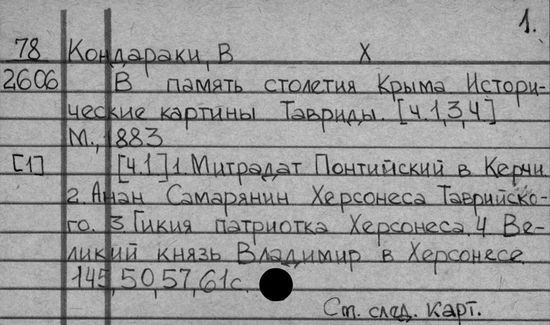 1.
78 Кондараки, В X
2606 В память столетия Крыма Истори-
ческие картины Тавриды. [ч.1,3,4]
М., 1883
[1] [ч.1] 1. Митрадат Понтийский в Керчи
2. Анан Самарянин Херсонеса Таврийско-
го. 3 Гикия патриотка Херсонеса. 4 Ве-
ликий князь Владимир в Херсонесе
145, 50, 57, 61с.
См. след. карт.